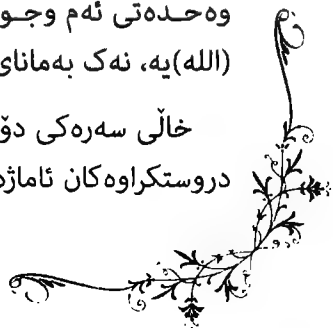 وەحـدەتی ئەم وجـو
(الله)یە، نەک بەمانای
خاڵی سەرەکی دۆ
دروستکراوەکان ئاماژە